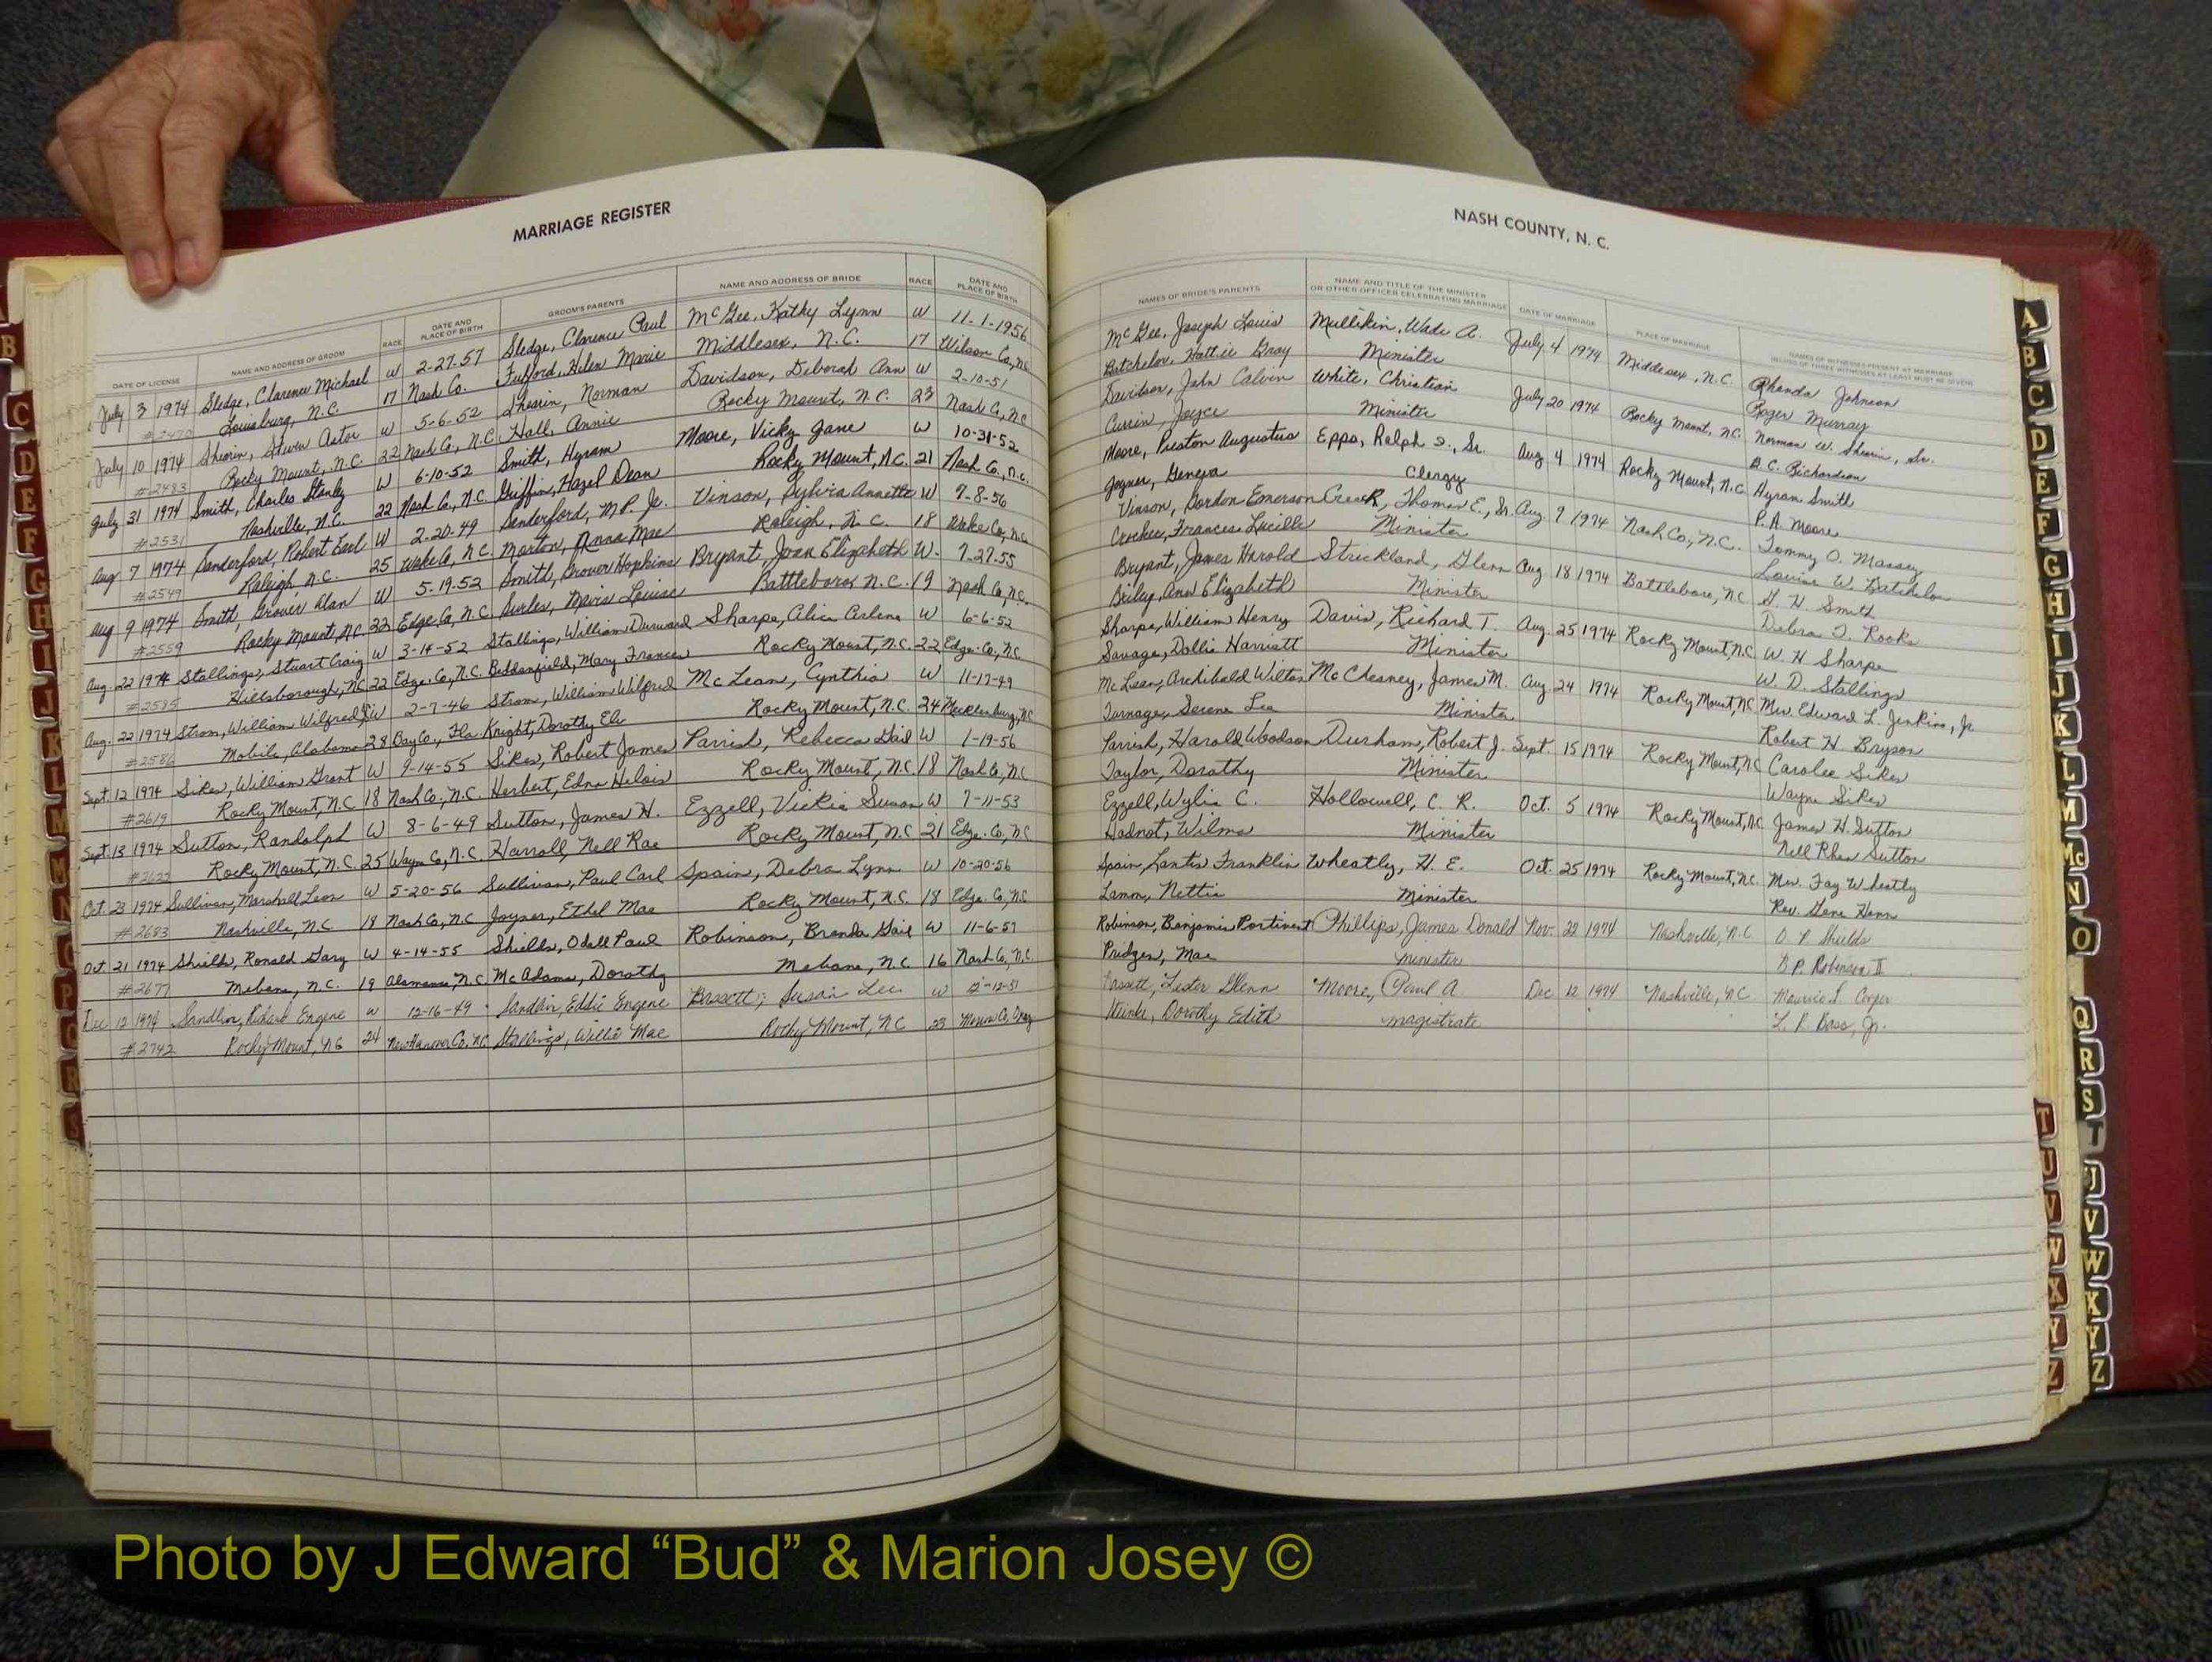 MARRIAGE REGISTER
DATE OF LICENSE NAME AND ADDRESS OF GROOM RACE DATE AND PLACE OF BIRTH GROOM'S PARENTS NAME AND ADDRESS OF BRIDE RACE DATE AND PLACE OF BIRTH
July 3 1974 Sledge, Clarence Michael W 2-27-57 Sledge, Clarence Paul McGee, Kathy Lynn W 11-1-1956
#2470 Louisburg, N.C. 17 Nash Co. Fulford, Helen Marie Middlesex, N.C. 17 Wilson Co, NC
July 10 1974 Shearin, Steven Astor W 5-6-52 Shearin, Norman Davidson, Deborah Ann W 2-10-51
#2483 Rocky Mount, N.C. 22 Nash Co, N.C. Hall, Annie Rocky Mount, N.C. 23 Nash Co, NC
July 31 1974 Smith, Charles Stanley W 6-10-52 Smith, Hyram Moore, Vicky Jane W 10-31-52
#2531 Nashville, N.C. 22 Nash Co, N.C. Griffin, Hazel Dean Rocky Mount, N.C. 21 Nash Co, N.C.
Aug 7 1974 Sanderford, Robert Earl W 2-20-49 Sanderford, M.P. Jr. Vinson, Sylvia Annette W 9-8-56
#2549 Raleigh, N.C. 25 Wake Co, N.C. Morton, Anna Mae Raleigh, N.C. 18 Wake Co, N.C.
Aug 9 1974 Smith, Grover Alan W 5-19-52 Smith, Grover Hopkins Bryant, Joan Elizabeth W. 7-27-55
#2559 Rocky Mount, N.C. 22 Edge. Co, N.C. Surles, Mavis Louise Battleboro, N.C. 19 Nash Co, N.C.
Aug. 22 1974 Stallings, Stuart Craig W 3-14-52 Stallings, William Durward Sharpe, Alice Arlene W 6-6-52
#2585 Hillsborough, NC 22 Edge. Co, N.C. Beddenfield, Mary Frances Rocky Mount, N.C. 22 Edge. Co, N.C.
Aug. 22 1974 Strom, William Wilfred W 2-7-46 Strom, William Wilfred McLean, Cynthia W 11-17-49
#2586 Mobile, Alabama 28 Bay Co, Fla Knight, Dorothy Eli Rocky Mount, N.C. 24 Mecklenburg, NC
Sept. 12 1974 Sikes, William Grant W 9-14-55 Sikes, Robert James Parrish, Rebecca Gail W 1-19-56
#2619 Rocky Mount, N.C 18 Nash Co, N.C. Herbert, Edna Helois Rocky Mount, N.C. 18 Nash Co, N.C
Sept. 13 1974 Sutton, Randolph W 8-6-49 Sutton, James H. Ezzell, Vickie Susan W 7-11-53
#2622 Rocky Mount, N.C. 25 Wayne Co, N.C. Harrell, Nell Rae Rocky Mount, N.C 21 Edge. Co, N.C.
Oct. 23 1974 Sullivan, Marshall Leon W 5-20-56 Sullivan, Paul Carl Spain, Debra Lynn W 10-20-56
#2683 Nashville, N.C 18 Nash Co, N.C Joyner, Ethel Mae Rocky Mount, N.C. 18 Edge. Co, N.C
Oct 21 1974 Shields, Ronald Gary W 4-14-55 Shields, Odell Paul Robinson, Brenda Gail W 11-6-57
#2677 Mebane, N.C. 19 Alamance, N.C. McAdams, Dorothy Mebane, N.C. 16 Nash Co, N.C.
Dec 12 1974 Sandlin, Richard Eugene W 12-16-49 Sandlin, Eddie Eugene Bassett, Susan Lee W
#2742 Rocky Mount, NC 24 New Hanover Co, NC Stallings, Willie Mae Rocky Mount, NC 23
NASH COUNTY, N. C.
NAMES OF BRIDE'S PARENTS NAME AND TITLE OF THE MINISTER OR OTHER OFFICER CELEBRATING MARRIAGE DATE OF MARRIAGE PLACE OF MARRIAGE NAMES OF WITNESSES PRESENT AT MARRIAGE
McGee, Joseph Louis Mullikin, Wade A. July 4 1974 Middlesex, N.C. Rhonda Johnson
Batchelor, Hattie Gray Minister Roger Murray
Davidson, John Calvin White, Christian July 20 1974 Rocky Mount, N.C. Norman W. Shearin, Sr.
Currin, Joyce Minister B.C. Richardson
Moore, Preston Augustus Epps, Ralph I., Sr. Aug 4 1974 Rocky Mount, N.C. Hyram Smith
Joyner, Geneva Clergy P.A. Moore
Vinson, Gordon Emerson Creech, Thomas E., Sr. Aug. 9 1974 Nash Co, N.C. Tommy O. Massey
Crocker, Frances Lucille Minister Louise W. Batchelor
Bryant, James Harold Strickland, Glenn Aug 18 1974 Battleboro, NC G. H. Smith
Briley, Ann Elizabeth Minister Debra T. Rooks
Sharpe, William Henry Davis, Richard T. Aug. 25 1974 Rocky Mount, N.C. W. H. Sharpe
Savage, Dollie Harriett Minister W. D. Stallings
McLean, Archibald Wilton McChesney, James M. Aug. 24 1974 Rocky Mount, N.C Mrs. Edward L. Jenkins, Jr.
Turnage, Serena Lee Minister Robert H. Bryson
Parrish, Harold Woodson Durham, Robert J. Sept. 15 1974 Rocky Mount, N.C Carolee Sikes
Taylor, Dorothy Minister Wayne Sikes
Ezzell, Wylie C. Hollowell, C. R. Oct. 5 1974 Rocky Mount, N.C James H. Sutton
Hadnot, Wilma Minister Nell Rhea Sutton
Spain, Lantis Franklin Wheatly, H. E. Oct. 25 1974 Rocky Mount, N.C. Mrs. Fay Wheatly
Lamm, Nettie Minister Rev. Gene Hann
Robinson, Benjamin Portinent Phillips, James Donald Nov. 22 1974 Nashville, N.C O. P. Shields
Pridgen, Mae Minister B P. Robinson II
Bassett, Lester Glenn Moore, Paul A. Dec 12 1974 Nashville, NC Maurice S. Cooper
Dorothy Edith magistrate L. R. Bass, Jr.
B
C
D
E
F
G
H
I
J
K
L
M
N
P
R
S
A
B
C
D
E
F
G
H
I
J
K
L
M
Mc
N
O
Q
R
S
T
V
W
X
Y
Z
T
U
V
W
X
Y
Z
Photo by J Edward “Bud” & Marion Josey ©